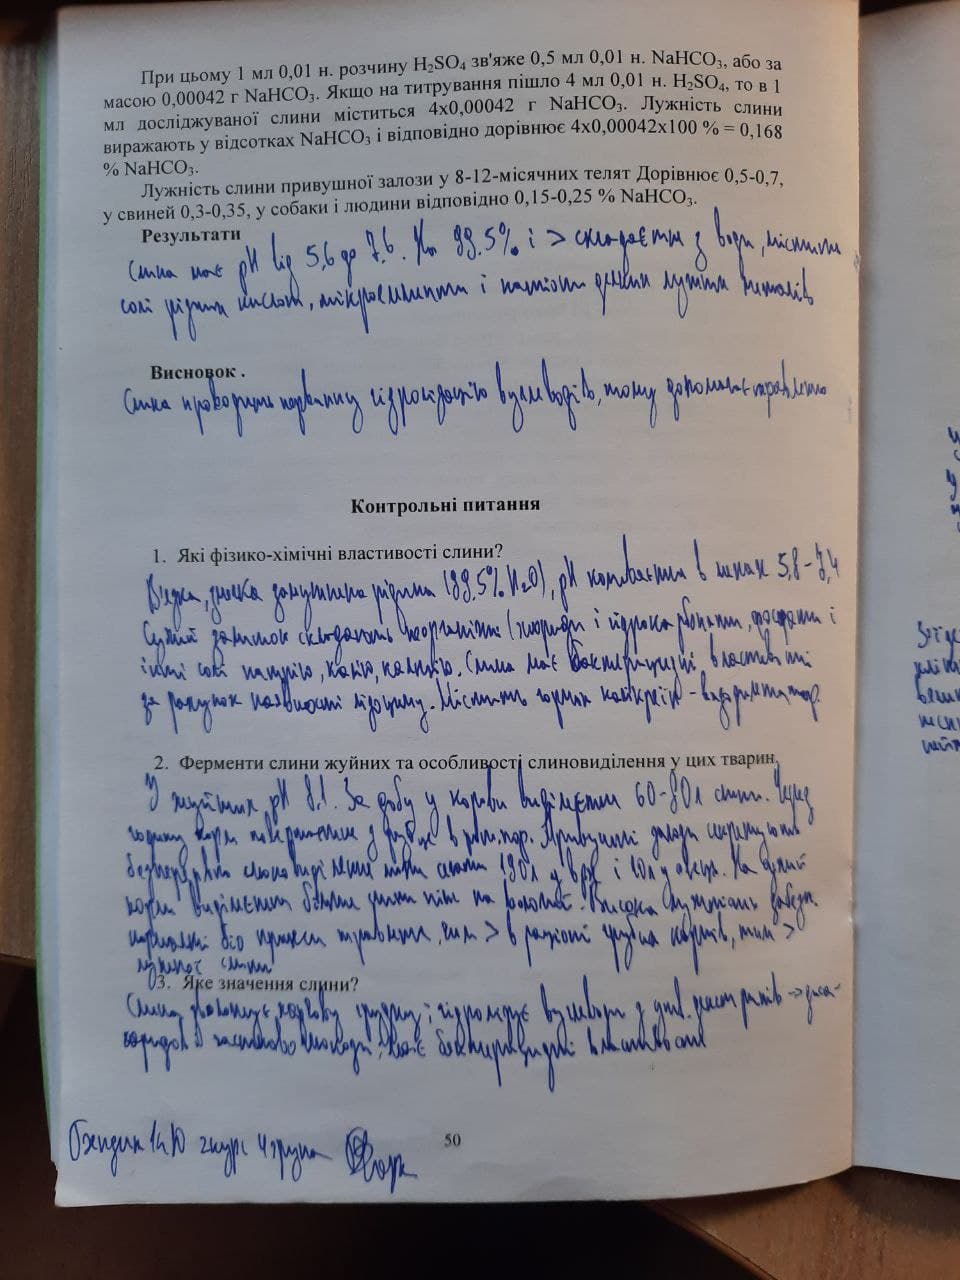 При цьому 1 мл 0,01 н. розчину H₂SO₄ зв'яже 0,5 мл 0,01 н. NaHCO₃, або за
масою 0,00042 г NaHCO₃. Якщо на титрування пішло 4 мл 0,01 н. H₂SO₄, то в 1
мл досліджуваної слини міститься 4х0,00042 г NaHCO₃. Лужність слини
виражають у відсотках NaHCO₃ і відповідно дорівнює 4х0,00042х100 % = 0,168
% NaHCO₃.
Лужність слини привушної залози у 8-12-місячних телят Дорівнює 0,5-0,7,
у свиней 0,3-0,35, у собаки і людини відповідно 0,15-0,25 % NaHCO₃.
Результати
Слина має pH від 5,6 до 7,6. На 99.5% і > складається з води, містить
солі різних кислот, мікроелементи і катіони деяких лужних металів
Висновок .
Слина проводить первинну гідролізацію вуглеводів, тому допомагає травленню
Контрольні питання
1. Які фізико-хімічні властивості слини?
В'язка, рідина (99.5% H₂O), pH коливається в межах 5,8-7,4
Сухий залишок складають неорганічні (хлориди і гідрокарбонати, фосфати і
інші солі натрію, калію, кальцію. Слина має бактерицидні властивості
за рахунок наявності лізоциму. Містить калікреїн -
2. Ферменти слини жуйних та особливості слиновиділення у цих тварин.
У жуйних pH 8,1. За добу у корови виділяється 60-80л слини. Через
годину корм з рубця в рот. Привушні залози секретують
безперервно 190л у врх і 10л у овець. На сухий
корм виділяється більше слини ніж на вологий. Висока лужність забезп.
нормальні біо процеси травлення, чим > в раціоні грубих кормів, тим >
лужної слини
3. Яке значення слини?
Слина зволожує харчову грудку; гідролізує вуглеводи з
частково має бактерицидні властивості
2курс 4група
50